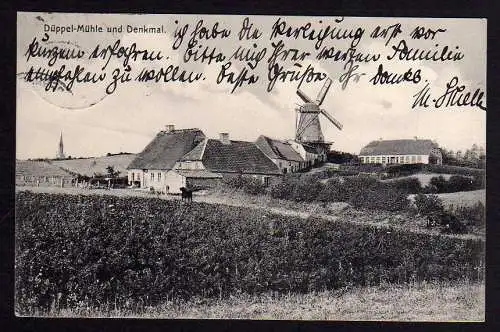 Düppel-Mühle und Denkmal.
ich habe die Verleihung erst vor
kurzem erfahren. Bitte mich Ihrer werten Familie
empfehlen zu wollen. Beste Grüße Ihr dankb.
M.